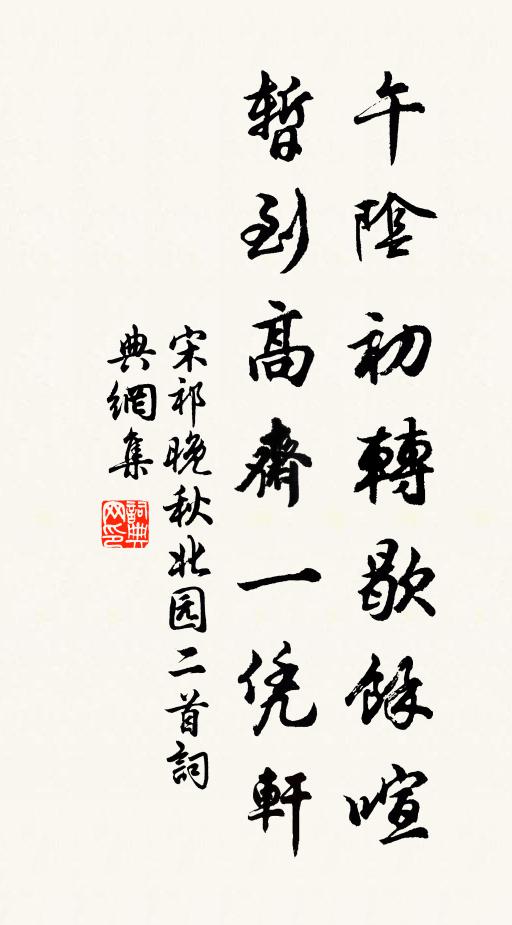 午陰初轉歇餘喧
暫到高齋一凭軒
宋祁晚秋北园二首詞
典網集
詞典网印